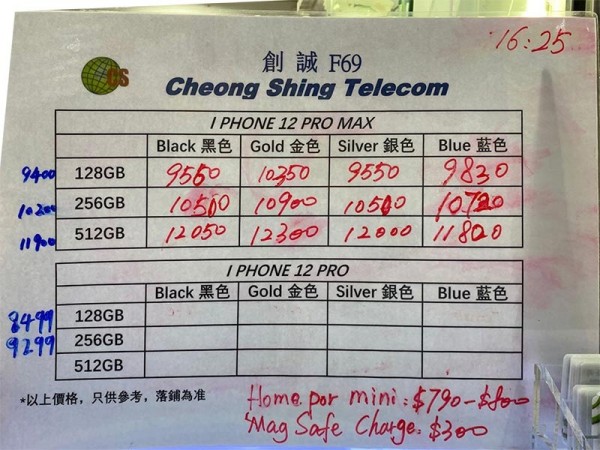 16:25
OS
創誠 F69
Cheong Shing Telecom
I PHONE 12 PRO MAX
Black 黑色 Gold 金色 Silver 銀色 Blue 藍色
9400 128GB 9550 10350 9550 9830
10200 256GB 10500 10900 10500 10720
11900 512GB 12050 12300 12000 11820
I PHONE 12 PRO
Black 黑色 Gold 金色 Silver 銀色 Blue 藍色
8499 128GB
9299 256GB
512GB
*以上價格，只供參考，落鋪為准
Home por mini: $790-$800
Mag Safe Charge: $300